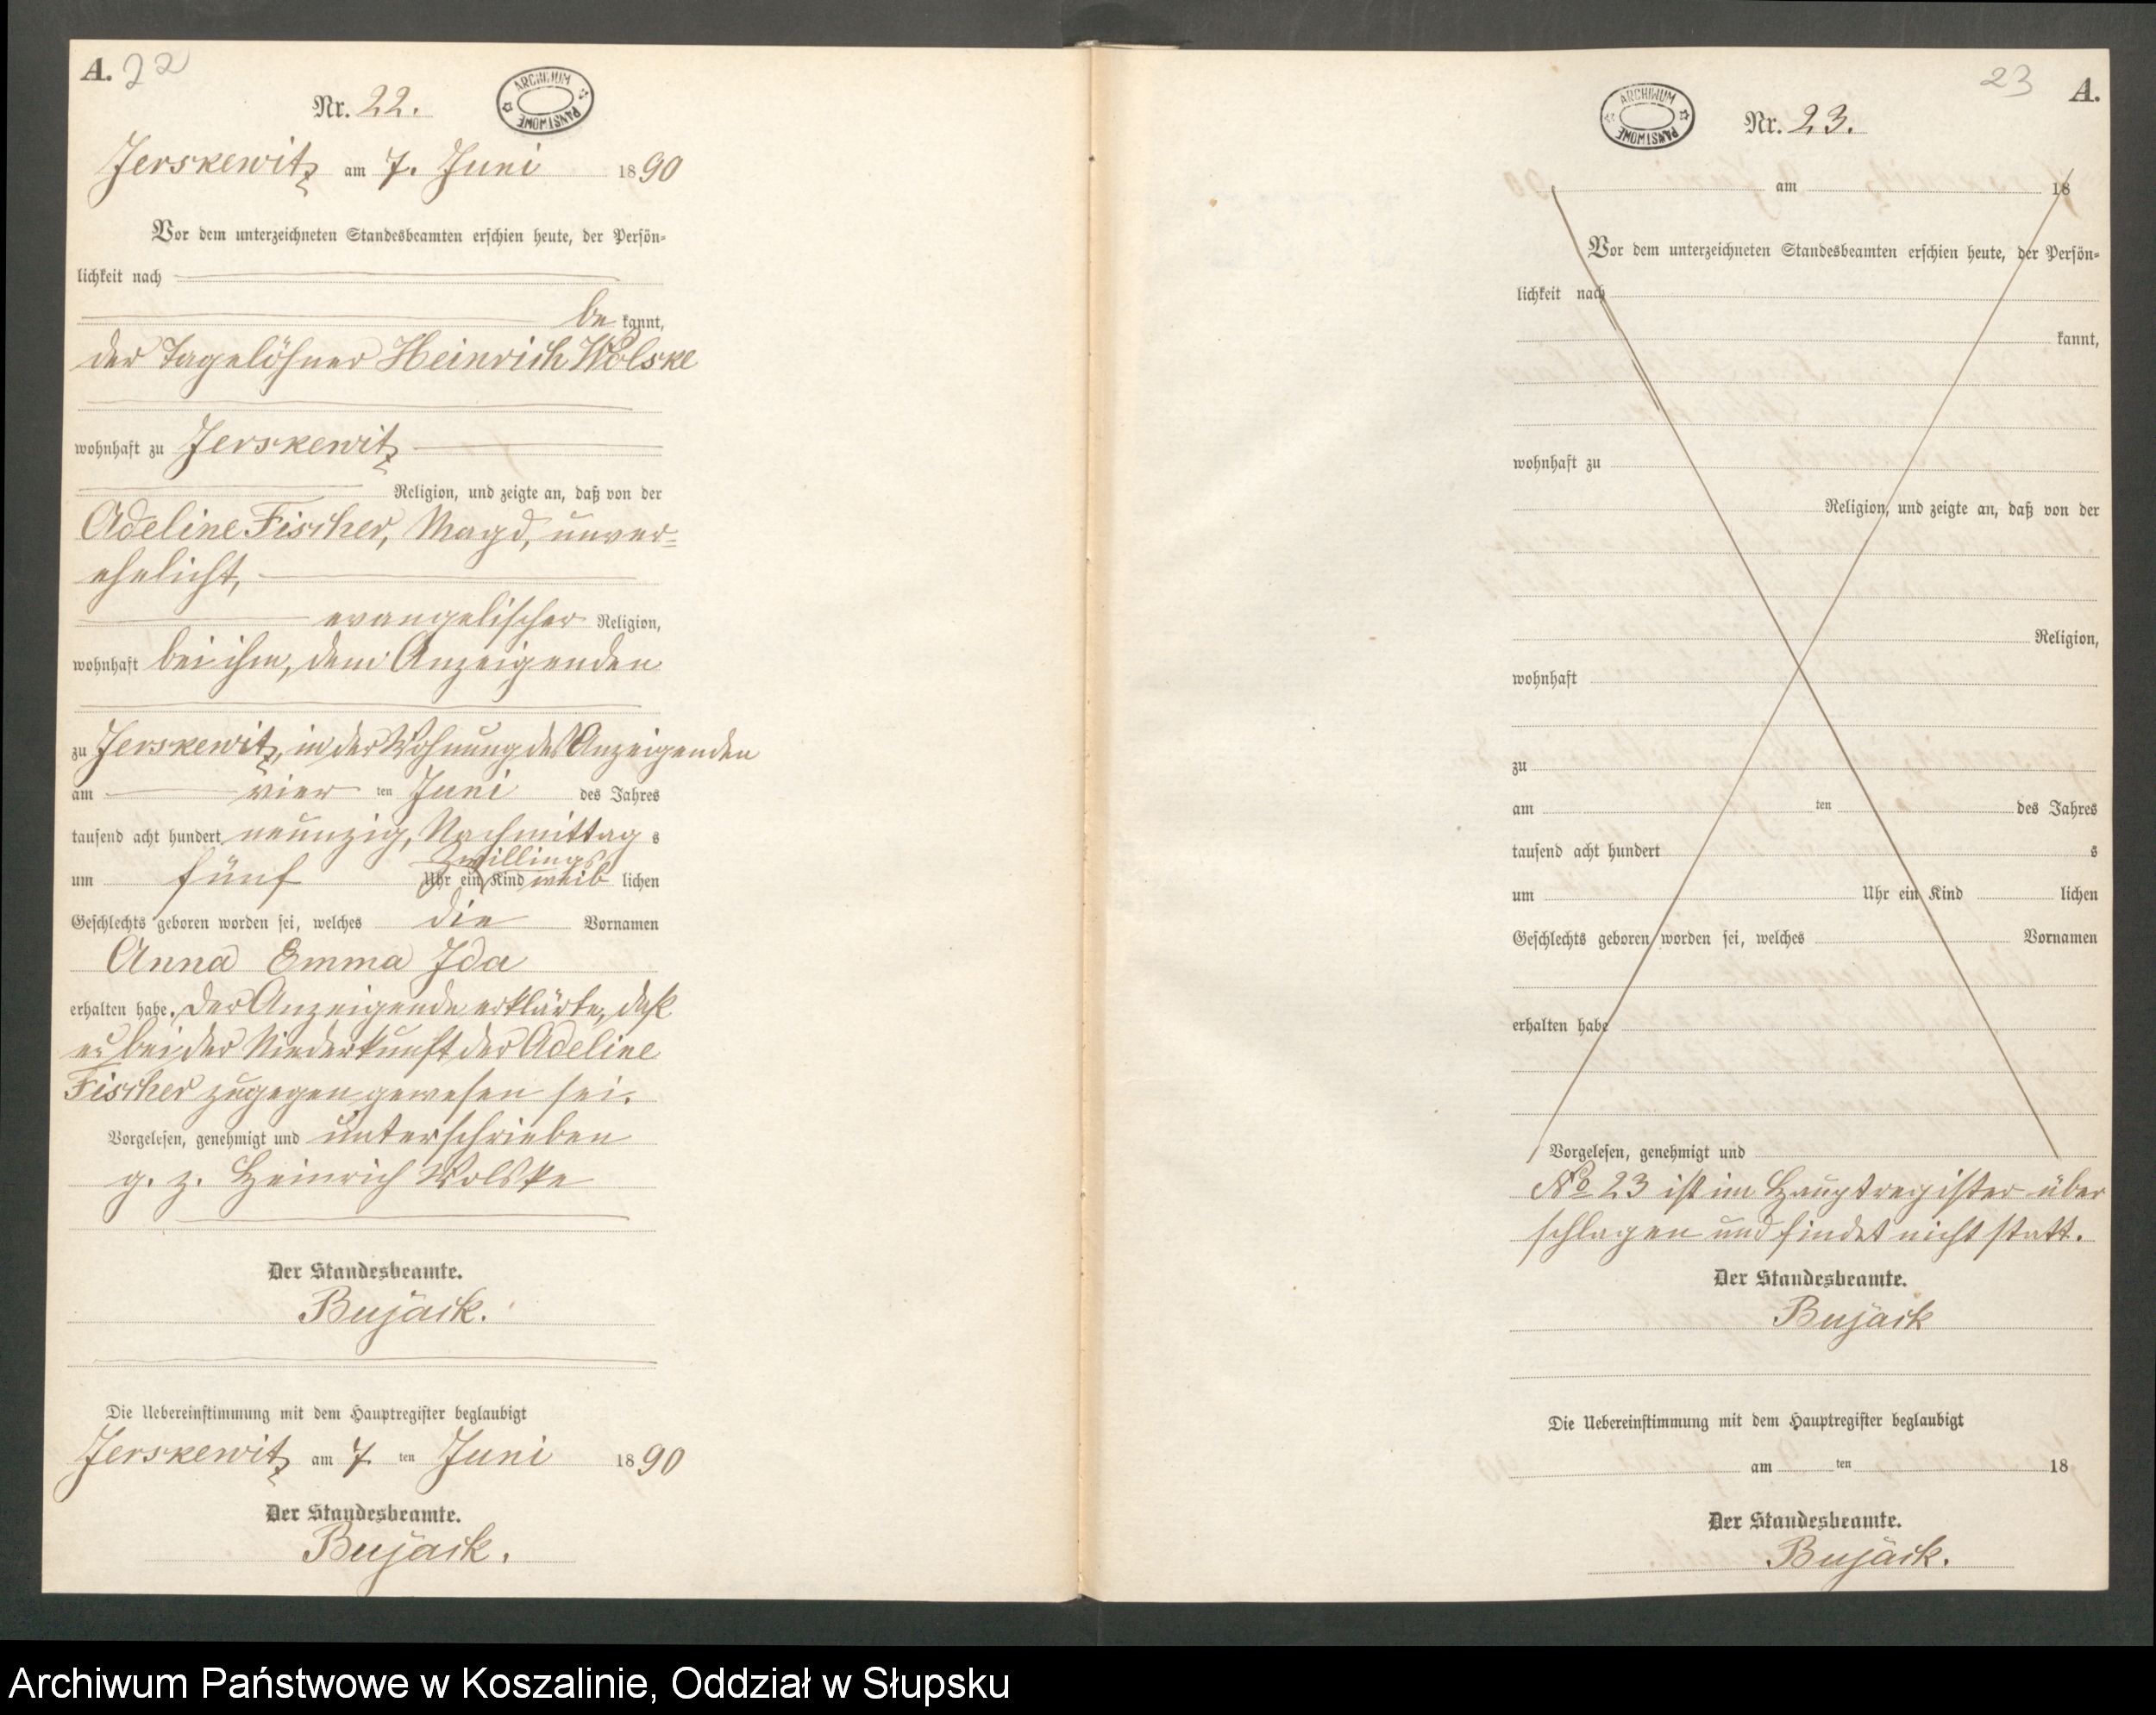 A. 22
Nr. 22.
ARCHIWUM PAŃSTWOWE
Jerskewitz am 7. Juni 1890
Vor dem unterzeichneten Standesbeamten erschien heute, der Persön-
lichkeit nach
be kannt,
der Tagelöhner Heinrich Wolske
wohnhaft zu Jerskewitz
Religion, und zeigte an, daß von der
Adeline Fischer, Magd, unver=
ehelicht,
evangelischer Religion,
wohnhaft bei ihm, dem Anzeigenden
zu Jerskewitz, in der Wohnung des Anzeigenden
am vier ten Juni des Jahres
tausend acht hundert neunzig, Nachmittag s
Zwillings
um fünf Uhr ein Kind weib lichen
Geschlechts geboren worden sei, welches die Vornamen
Anna Emma Ida
erhalten habe. Der Anzeigende erklärte, daß
er bei der Niederkunft der Adeline
Fischer zugegen gewesen sei.
Vorgelesen, genehmigt und unterschrieben
g. z. Heinrich Wolske
Der Standesbeamte.
Bujack.
Die Uebereinstimmung mit dem Hauptregister beglaubigt
Jerskewitz am 7. ten Juni 1890
Der Standesbeamte.
Bujack.
23 A.
ARCHIWUM PAŃSTWOWE
Nr. 23.
am 18
Vor dem unterzeichneten Standesbeamten erschien heute, der Persön-
lichkeit nach
kannt,
wohnhaft zu
Religion, und zeigte an, daß von der
Religion,
wohnhaft
zu
am ten des Jahres
tausend acht hundert s
um Uhr ein Kind lichen
Geschlechts geboren worden sei, welches Vornamen
erhalten habe
Vorgelesen, genehmigt und
No 23 ist im Hauptregister über
schlagen und findet nicht statt.
Der Standesbeamte.
Bujack
Die Uebereinstimmung mit dem Hauptregister beglaubigt
am ten 18
Der Standesbeamte.
Bujack.
Archiwum Państwowe w Koszalinie, Oddział w Słupsku